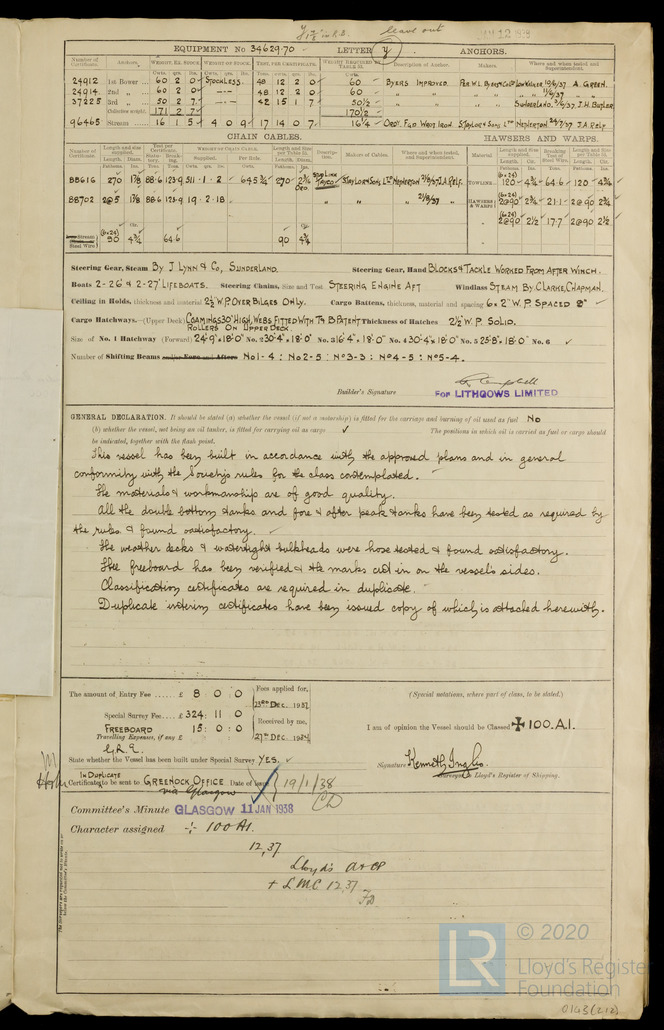 leave out
EQUIPMENT No 34629.70 LETTER y ANCHORS.
Number of Certificate. Anchors. WEIGHT, EX. STOCK. WEIGHT OF STOCK. TEST, PER CERTIFICATE. WEIGHT REQUIRED BY TABLE 31. Description of Anchor. Makers. Where and when tested and Superintendent.
Cwts. qrs. lb. Cwts. qrs. lb. Tons. cwts. qrs. lb. Cwts.
24912 1st Bower 60 2 0 STOCKLESS. 48 12 2 0 60 BYERS IMPROVED. A. GREEN.
24914 2nd „ 60 2 0 48 12 2 0 60
37225 3rd „ 50 2 7 42 15 1 7 50½ SUNDERLAND. J.H. BUTLER
Collective weight 171 2 7 170½
96465 Stream 16 1 5 4 0 9 17 14 0 7 16¼ ORDY. FGD WRGT IRON. S. TAYLOR & SONS LTD NEPHERTON J.A. RELF.
CHAIN CABLES. HAWSERS AND WARPS.
Number of Certificate. Length and size supplied. Test per Certificate. WEIGHT OF CHAIN CABLE. Length and size per Table 31. Description. Makers of Cables. Where and when tested, and Superintendent. Material Length and Size supplied. Breaking Test of Steel Wire. Length and Size per Table 31.
88616 270 1⅞ 88.6 123.9 511.1.2 645¾ 270 STUD LINK J.A. RELF. TOWLINE 120 4¾ 64.6 120 4¾
88702 1⅞ 88.6 123.9 19.2.18 „ „ „ HAWSERS & WARPS 2@90 2¾ 21.1 2@90 2¾
(6x24) 90 4¾ 64.6 90 4¾ (6x24) 2@90 2½ 17.7 2@90 2½
Steering Gear, Steam BY J. LYNN & CO, SUNDERLAND. Steering Gear, Hand BLOCKS & TACKLE WORKED FROM AFTER WINCH.
Boats 2-26' & 2-27' LIFEBOATS. Steering Chains, Size and Test STEERING ENGINE AFT Windlass STEAM BY CLARKE, CHAPMAN.
Ceiling in Holds, thickness and material 2½" W.P. OVER BILGES ONLY. Cargo Battens, thickness, material and spacing 6 x 2" W.P. SPACED 8"
Cargo Hatchways.—(Upper Deck) COAMINGS 30" HIGH, WEBS FITTED WITH T & B PATENT Thickness of Hatches 2½" W.P. SOLID.
ROLLERS ON UPPER DECK.
Size of No. 1 Hatchway (Forward) 24'-9" x 18'-0" No. 2 30'-4" x 18'-0" No. 3 16'-4" x 18'-0" No. 4 30'-4" x 18'-0" No. 5 25'-8" x 18'-0" No. 6
Number of Shifting Beams and/or Fore and Afters No1-4 : No2-5 : No3-3 : No4-5 : No5-4.
Builder's Signature
FOR LITHGOWS LIMITED
GENERAL DECLARATION. It should be stated (a) whether the vessel (if not a motorship) is fitted for the carriage and burning of oil used as fuel No
(b) whether the vessel, not being an oil tanker, is fitted for carrying oil as cargo The positions in which oil is carried as fuel or cargo should
be indicated, together with the flash point.
This vessel has been built in accordance with the approved plans and in general
conformity with the Society's rules for the class contemplated.
The materials & workmanship are of good quality.
All the double bottom tanks and fore & after peak tanks have been tested as required by
the rules & found satisfactory.
The weather decks & watertight bulkheads were hose tested & found satisfactory.
The freeboard has been verified & the marks cut in on the vessel's sides.
Classification certificates are required in duplicate.
Duplicate interim certificates have been issued copy of which is attached herewith.
The amount of Entry Fee £ 8 : 0 : 0 Fees applied for,
23RD DEC. 1937 (Special notations, where part of class, to be stated.)
Special Survey Fee £ 324 : 11 : 0
FREEBOARD 15 : 0 : 0 Received by me,
Travelling Expenses, if any £ 27TH DEC. I am of opinion the Vessel should be Classed ✠ 100.A1.
State whether the Vessel has been built under Special Survey YES.
Signature
Surveyor to Lloyd's Register of Shipping.
IN DUPLICATE
Certificate to be sent to GREENOCK OFFICE Date of issue 19/1/38
via Glasgow
Committee's Minute GLASGOW 11 JAN 1938
Character assigned + 100A1.
12,37
Lloyd's A & CP
+ LMC 12,37
LR
© 2020
Lloyd's Register
Foundation
0143(2/2)